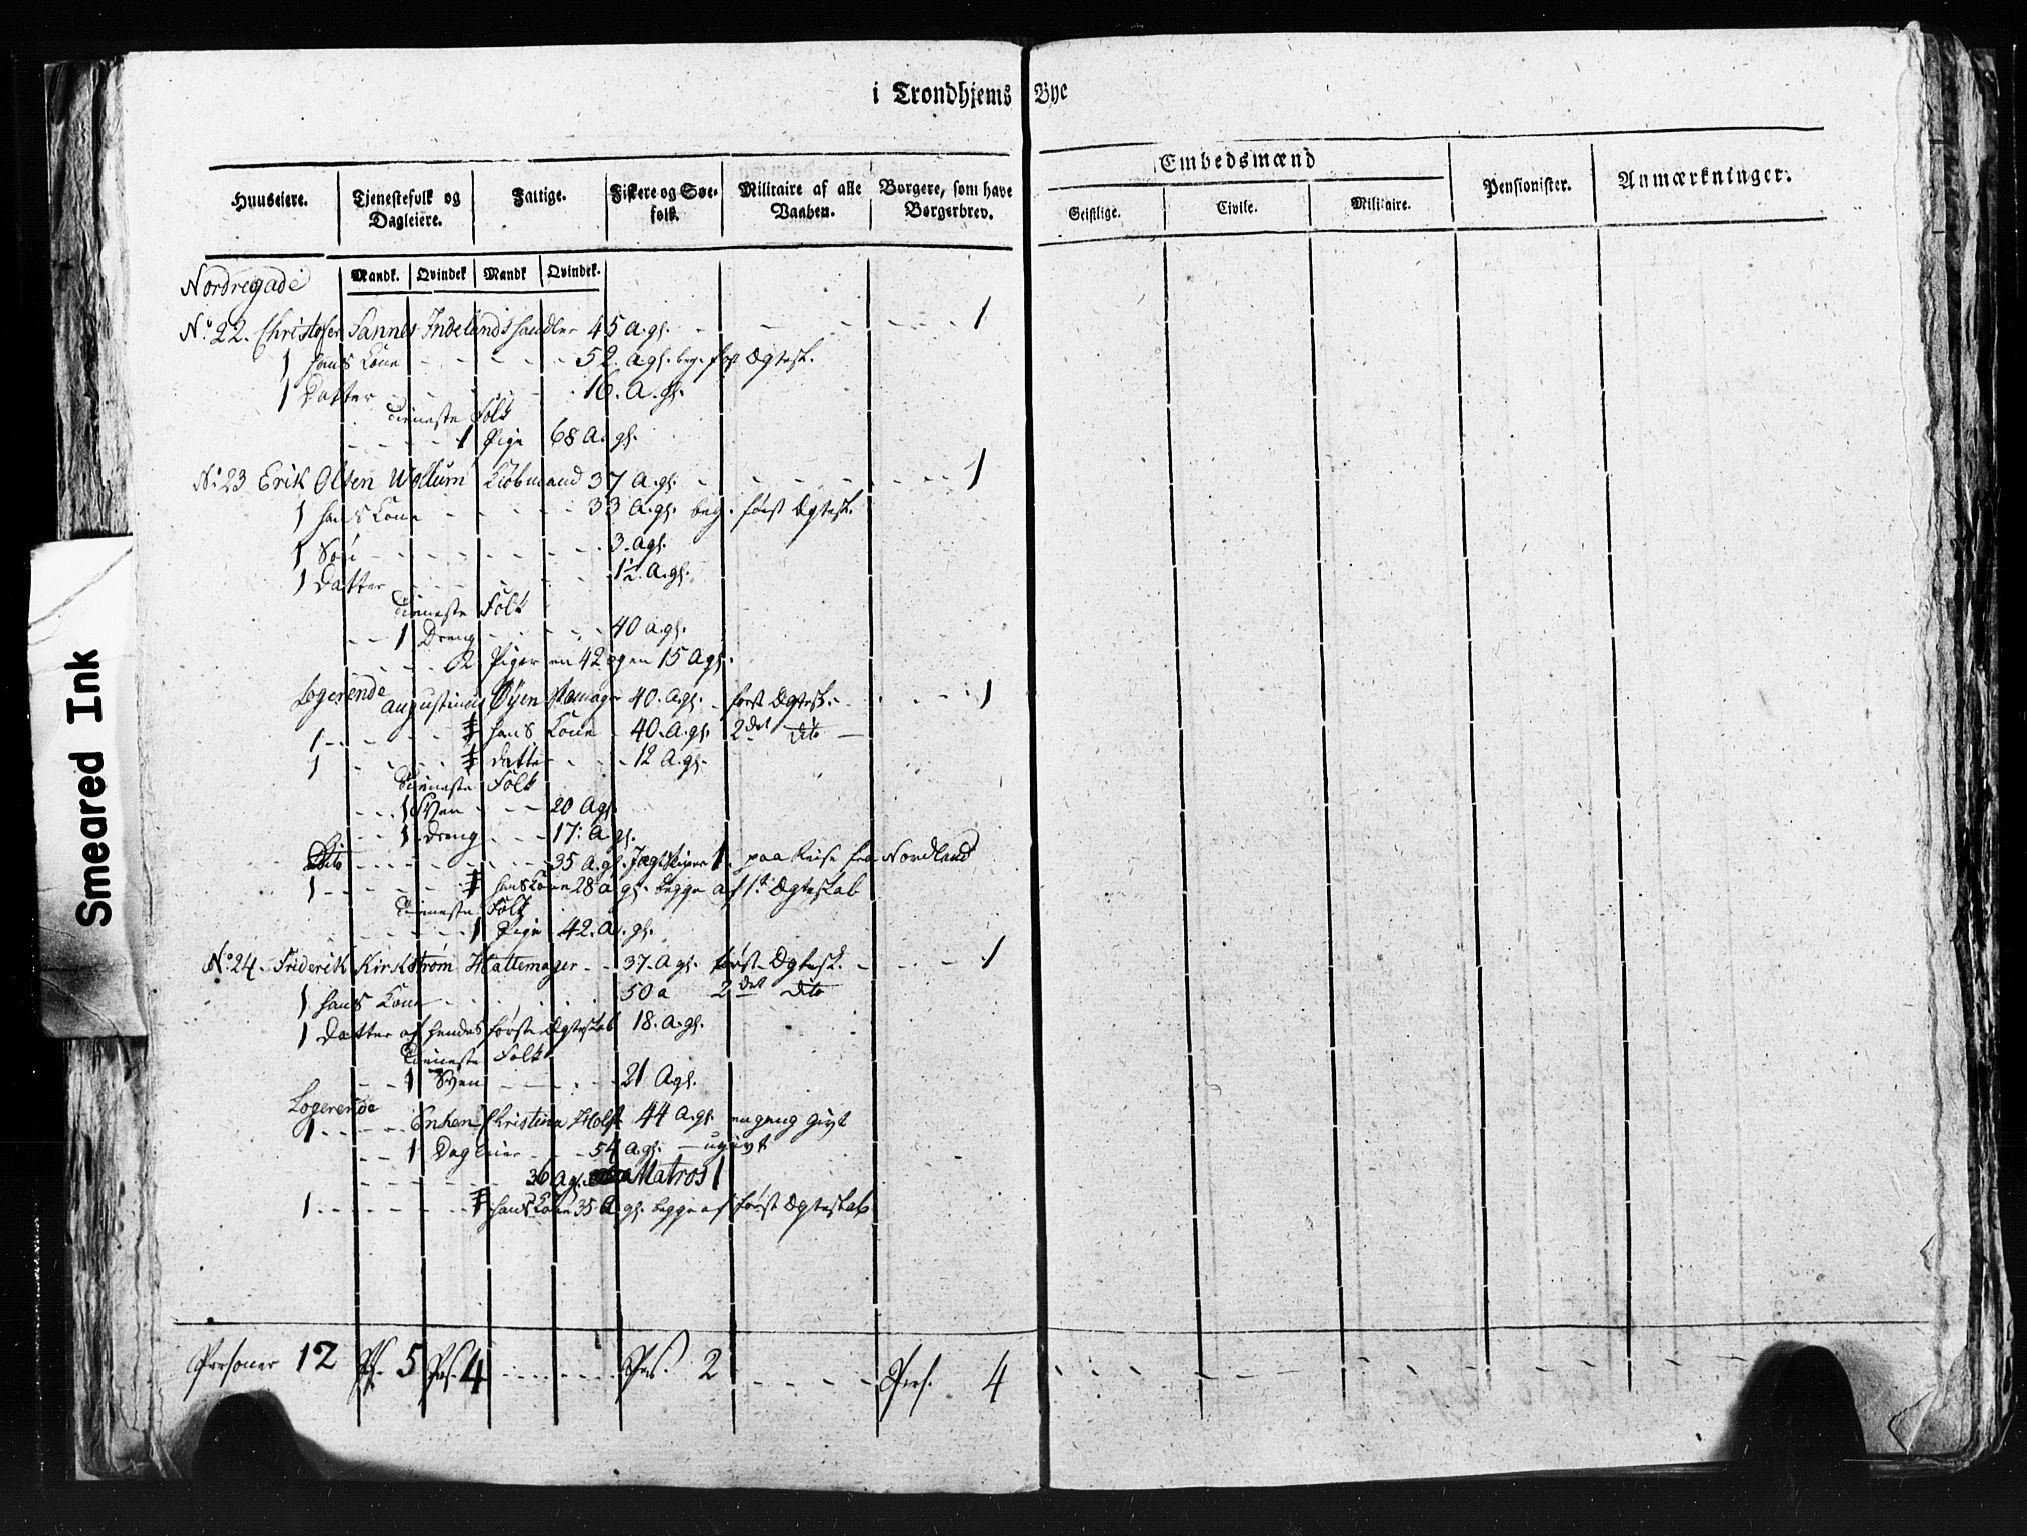 i Trondhjems Bye
Embedsmænd
Huuseiere. Tjenestefolk og Dagleiere. Fattige. Fiskere og Søe-folk. Militaire af alle Vaaben. Borgere, som have Borgerbrev. Geistlige. Civile. Militaire. Pensionister. Anmærkninger.
Mandk. Qvindek Mandk Qvindek.
Nordregade
No. 22. Christofer Sannes Indelands handler 45 A. gl. - - - - - 1
1 hans Kone - - - - - 52. A gl. beg. først Ægtesk.
1 Datter - - - - 16. A. gl.
Tieneste Folk
- - - - 1 Pige 68 A. gl.
No. 23 Erik Olsen Wollum Kiøbmand 37 A. gl. - - - - - 1
1 hans Kone - - - - 33 A. gl. beg. først Ægtesk.
1 Søn - - - - - - - 3. A gl.
1 Datter - - - - - 1½. A. gl.
Tieneste Folk
- - 1 Dreng - - - - 40 A. gl.
- - - - 2 Piger en 42 og en 15 A gl.
Logerende Augustinus Øyen 40. A. gl. - først Ægtesk. - - - 1
1 - - - - - hans Kone - 40. A. gl. 2det dito -
1 - - - - - datter - - - 12 A. gl.
Tieneste Folk
- - - 1 Sven - - - 20 A gl.
- - 1 dreng - - - 17. A gl.
Dito - - - - - - - - 35 A. gl. Jagtskipper 1. paa Reise fra Nordland
1 - - - - - hans Kone 28 a gl. begge af 1ste Ægteskab
Tieneste Folk
- - - - - 1 Pige 42. A. gl.
No. 24. Friderik Kirkstrøm Hattemager - - 37. A gl. først Ægtesk. - - - - 1
1 hans Kone - - - - - 50 a 2det dito
1 Datter af hendes første Ægteskab 18. A. gl.
Tieneste Folk
- - 1 Sven - - - - 21 A gl.
Logerende
1 - - - - - Enken Christina Holst 44 A. gl. engang givt
- - 1 Dagleier - - - 54 A. gl. - ugivt
- - - - - - - 36 A gl. Matros 1
1 - - - - - - hans Kone 35 A gl. begge af først Ægteskab
Personer 12 Ps. 5 Ps. 4 - - - - - Ps. 2 - - - - - Pers. 4
Smeared Ink